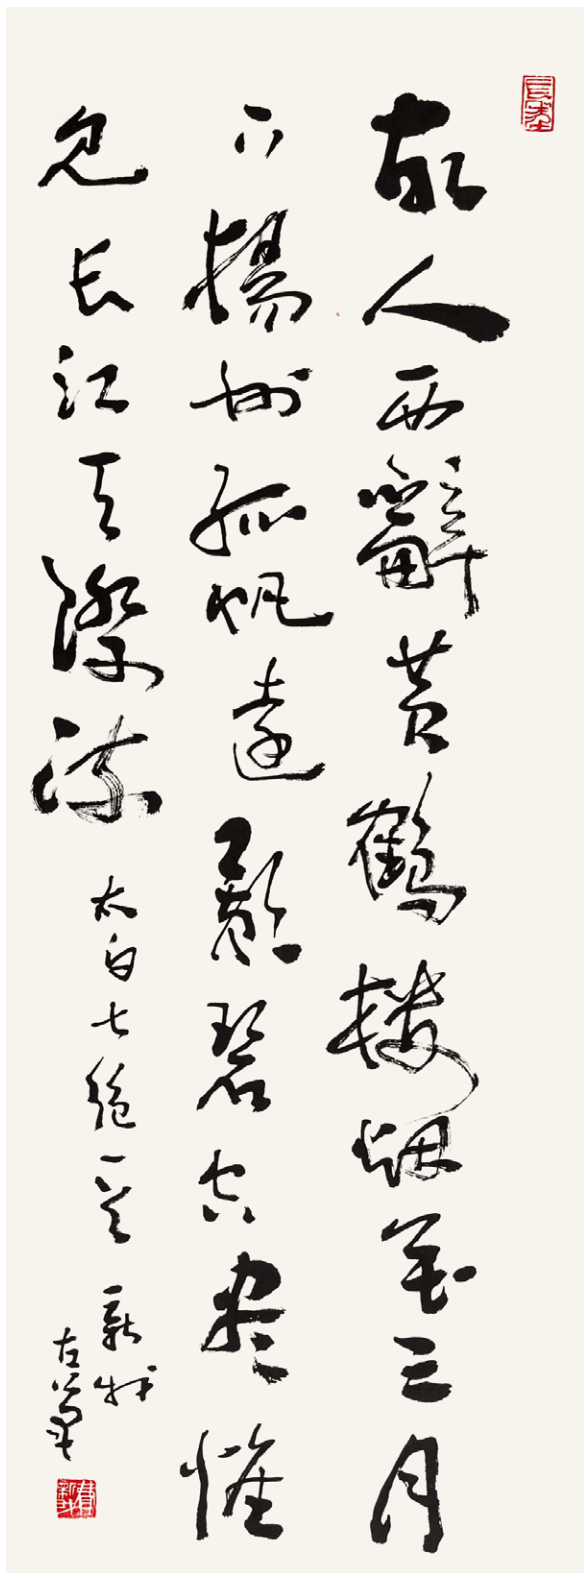 故人西辭黄鶴樓烟花三月
下揚州孤帆遠影碧空盡惟
見長江天際流 太白七絶一首 新我
左筆